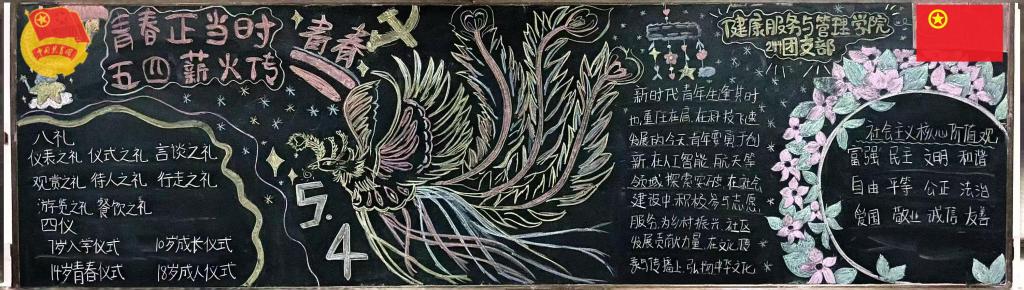 青春正当时
五四薪火传
青春
5.4
健康服务与管理学院
241团支部
八礼
仪表之礼 仪式之礼 言谈之礼
观赏之礼 待人之礼 行走之礼
游览之礼 餐饮之礼
四仪
7岁入学仪式 10岁成长仪式
14岁青春仪式 18岁成人仪式
新时代青年生逢其时
也重任在肩,在科技飞速
发展的今天,青年要勇于创
新,在人工智能、航天等
领域探索突破,在社会
建设中积极参与志愿
服务,为乡村振兴、社区
发展贡献力量,在文化传
承与传播上,弘扬中华文化
社会主义核心价值观
富强 民主 文明 和谐
自由 平等 公正 法治
爱国 敬业 诚信 友善